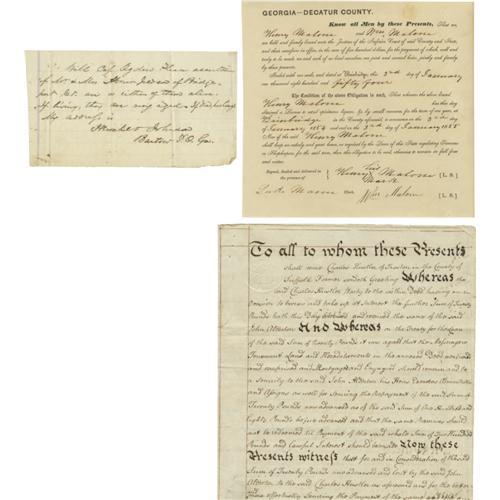 Will Capt Rogers
of Mr & Mrs
port Ct. or is either of them alive.
If living, they are very aged.
My address is
Bartow P.O. Ga.
GEORGIA—DECATUR COUNTY.
Know all Men by these Presents, That we
Henry Malone and Wm Malone
are held and firmly bound unto the Justices of the Inferior Court of said County and State,
and their successors in office, in the sum of five hundred dollars, for the payment of which, well and
truly to be made we and each of us bind ourselves our joint and several heirs, jointly and firmly
by these presents.
Sealed with our seals and dated at Bainbridge, the 2nd day of January
one thousand eight hundred and fifty four
The Condition of the above Obligation is such, That whereas the above bound
Henry Malone has this day
obtained a License to retail spirituous liquors
Bainbridge in the County aforesaid, to commence on the 2nd day
of January 1854 and end on the 2nd day of January 1855
Now if the said Henry Malone
shall keep an orderly and quiet house, as required by the Laws of this State regulating Taverns
or Shopkeepers, for the said time, then this Obligation to be void, otherwise to remain in full force
and virtue.
Signed, Sealed and delivered in
the presence of
Henry his Malone [L. S.]
mark
Luke Mann Clerk. Wm Malone [L. S.]
To all to whom these Presents
shall come Charles Hustler of in the County of
Suffolk Farmer sendeth Greeting Whereas the
said Charles Hustler Party to the within Deed having
occasion to borrow and take up at Interest the further Sum of Twenty
Pounds hath this Day and received the same of the said
John Alderton And Whereas on the Treaty for the Loan
of the said Sum of Twenty Pounds it was agreed that the Messuage
Tenement Land and Hereditaments in the annexed Deed contained
and comprised and Mortgaged and Engaged should remain and be
a Security to the said John Alderton his Heirs Executors Administrators
and Assigns as well for securing the Repayment of the said Sum of
Twenty Pounds now advanced as of the said Sum of One Hundred and
Eighty Pounds before advanced and that the same Premises should
not be redeemed til Payment of the said whole Sum of Two Hundred
Pounds and lawful Interest Now these
Presents witness that for and in Consideration of the said
Sum of Twenty Pounds now advanced and lent by the said John
Alderton to the said Charles Hustler as aforesaid and for the better and
more effectually securing the Payment of the same